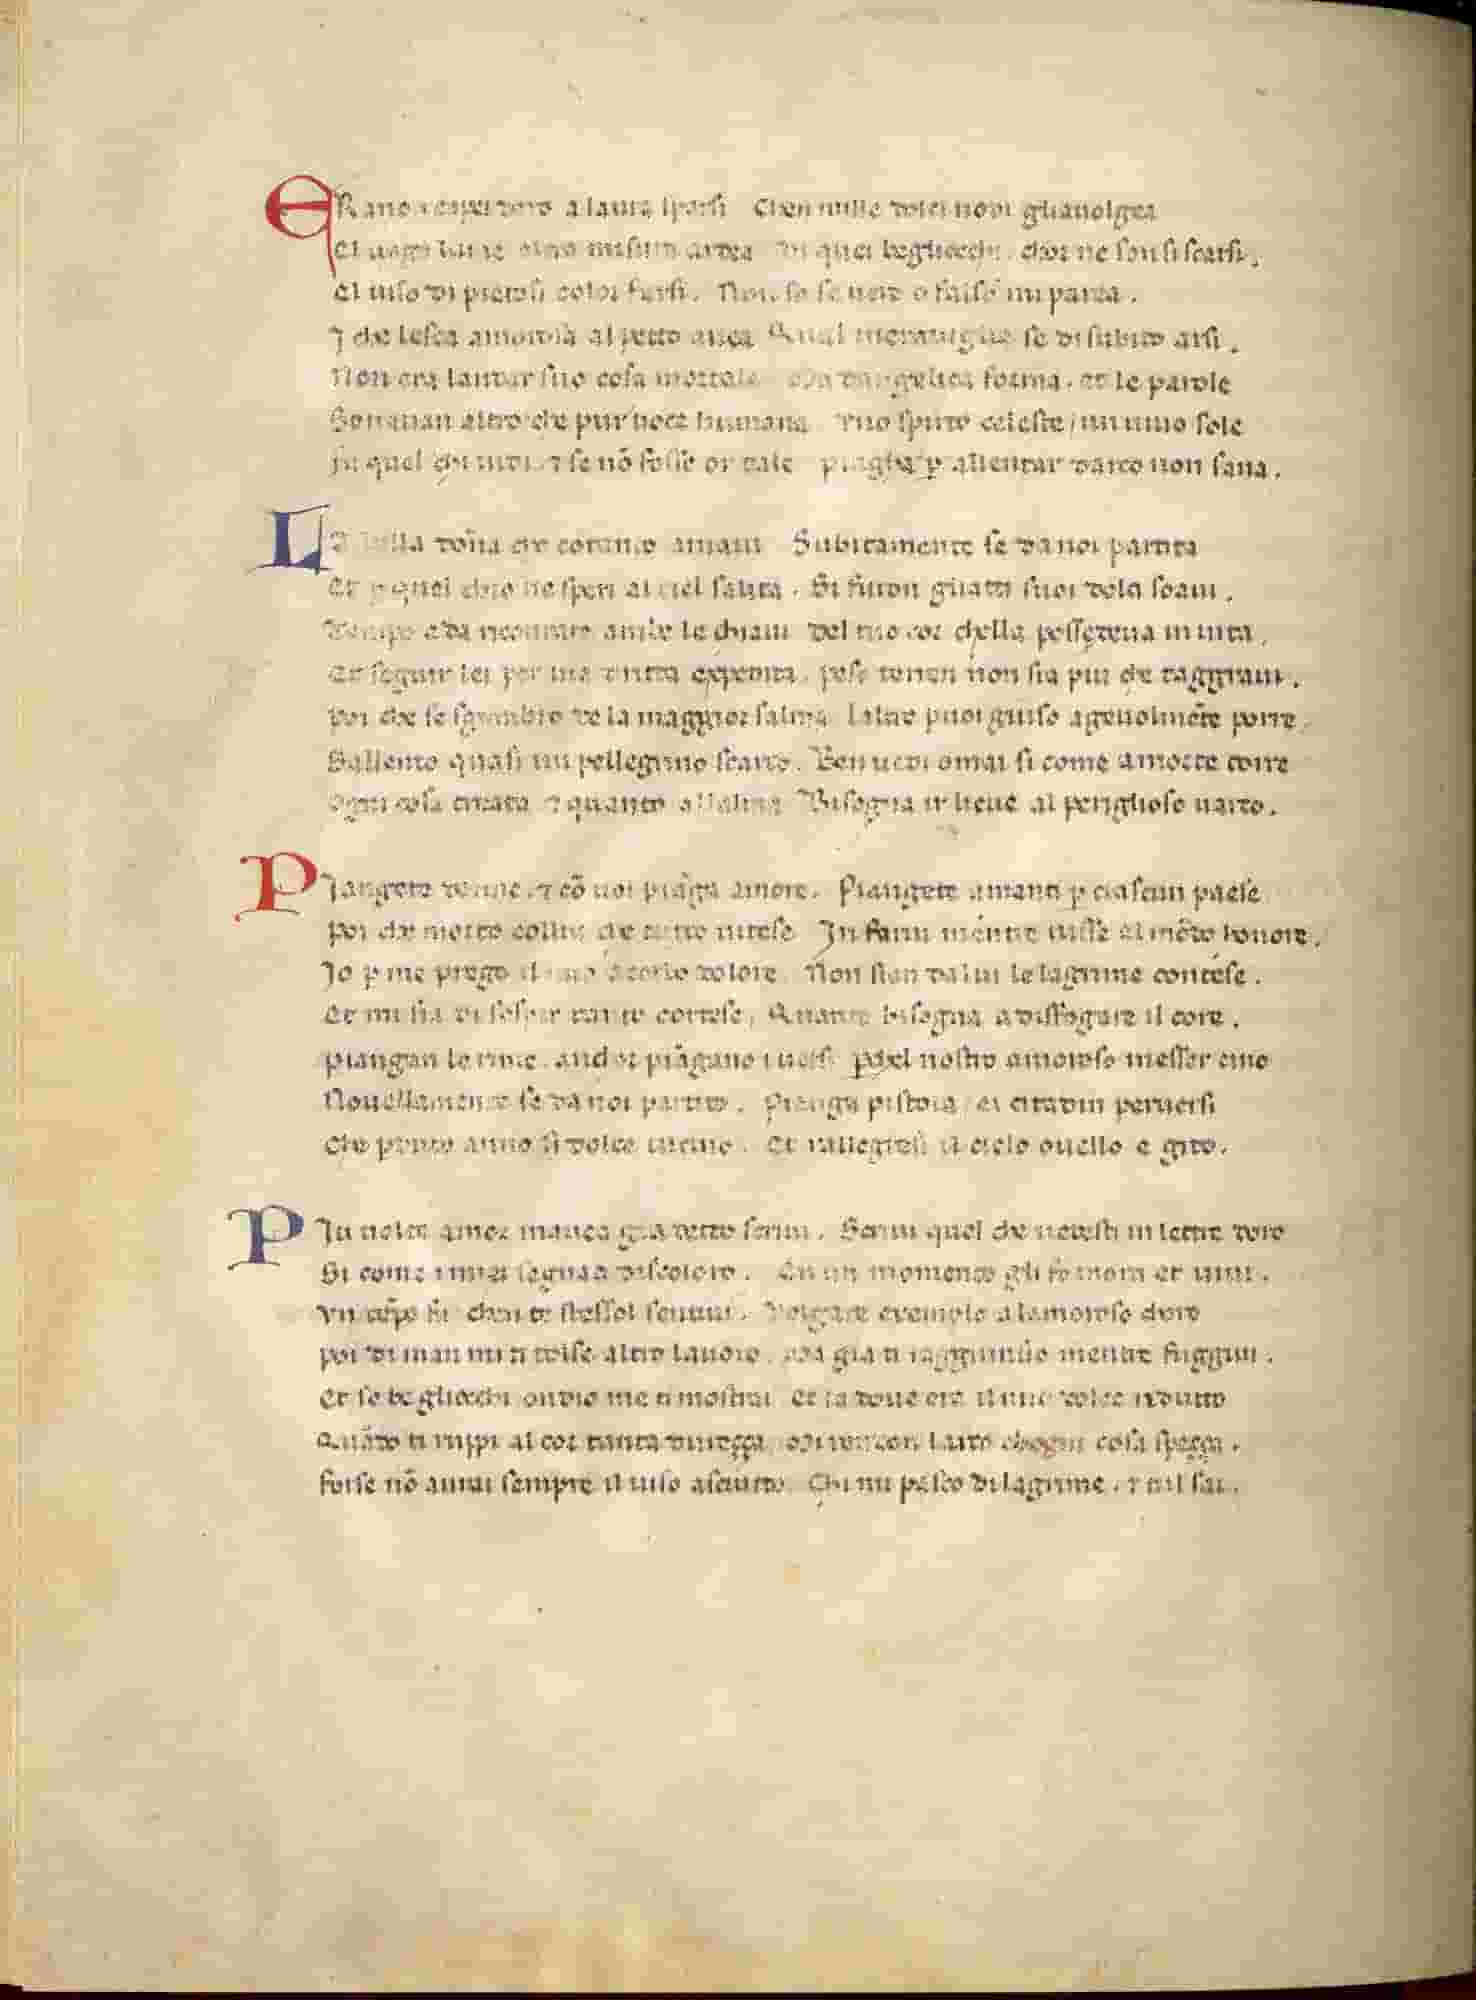 ERano i capei doro a laura sparsi Chen mille dolci nodi gliauolgea
El uago lume oltra misura ardea Di quei begliocchi. chor ne son si scarsi.
El uiso di pietosi color farsi. Non so se uero o falso mi parea.
J che lesca amorosa al petto auea Qual merauiglia se di subito arsi.
Non era landar suo cosa mortale Ma dangelica forma. et le parole
Sonauan altro che pur uoce humana Vno spirto celeste / un uiuo sole
Fu quel chi uidi. ⁊ se nō fosse or tale piagha ꝑ allentar darco non sana.
LA bella dōna che cotanto amaui Subitamente se da noi partita
Et ꝑ quel chio ne speri al ciel salita. Si furon gliatti suoi dolci soaui.
Tempo e da ricourare ambe le chiaui Del tuo cor chella possedeua in uita.
Et seguir lei per uia dritta expedita. peso terren non sia piu che taggraui.
Poi che se sgombro de la maggior salma Laltre puoi giuso ageuolmēte porre.
Sallendo quasi un pellegrino scarco. Ben uedi omai si come amorte corre
Ogni cosa creata ⁊ quanto allalma Bisogna ir lieue al periglioso uarco.
PJangete donne. ⁊ cō uoi piāga amore. Piangete amanti ꝑ ciascun paese
Poi che morto collui che tutto intese In farui mentre uisse al mōdo honore.
Jo ꝑ me prego il mio acerbo dolore. Non sian dalui le lagrime contese.
Et mi sia di sospir tanto cortese. Quanto bisogna a disfogare il core.
Piangan le rime. ancor piāgano i uersi ꝑchel nostro amoroso messer cino
Nouellamente se da noi partito. Pianga pistoia / ei citadin peruersi
Che perduto anno si dolce uicino. Et rallegresi il cielo ouello e gito.
PIu uolte amor mauea gia detto scriui. Scriui quel che uedesti in lettre doro
Si come i miei seguaci discoloro. En un momento gli fo morti et uiui.
Vn tēpo fu chen te stessol sentiui. Volgare exemplo a lamoroso choro
Poi di man mi ti tolse altro lauoro. Ma gia ti raggiunsio mentre fuggiui.
Et se begliocchi ondio me ti mostrai Et la doue era il mio dolce ridutto
Quādo ti ruppi al cor tanta durezza Mi rendon larco chogni cosa spezza.
Forse nō aurai sempre il uiso asciutto. Chi mi pasco di lagrime. ⁊ tul sai.